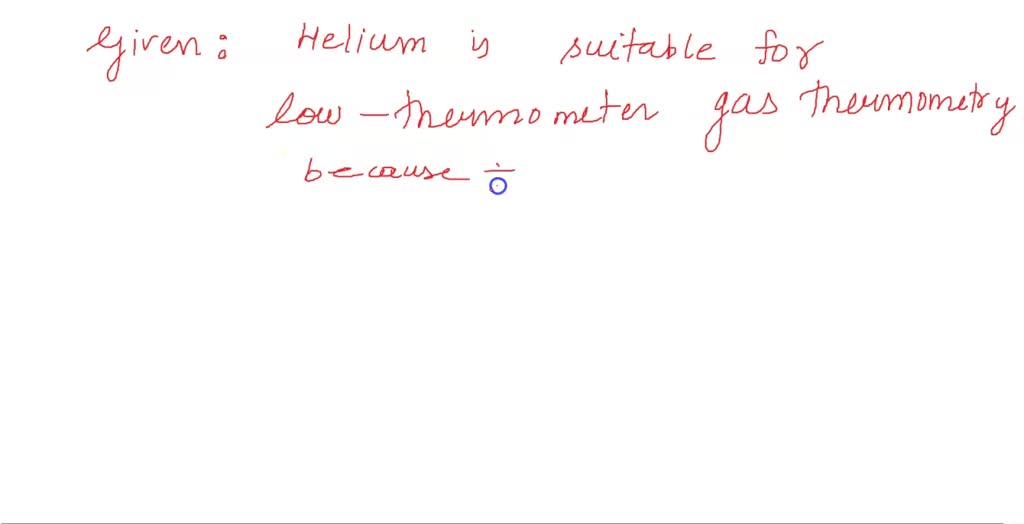 Given: Helium is suitable for
low-thermometer gas thermometry
because ÷